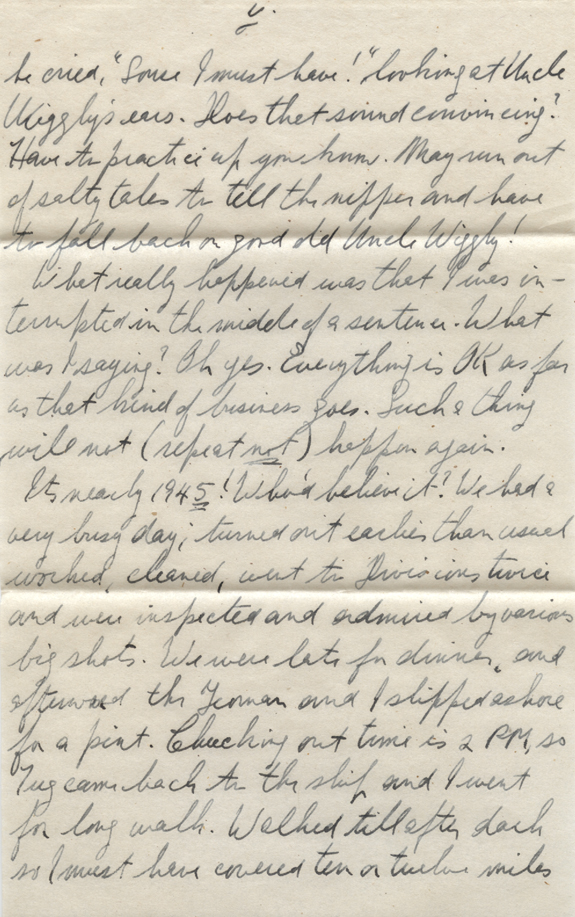 V.
he cried, "Some I must have!" looking at Uncle
Wiggly's ears. Does that sound convincing?
Have to practice up you know. May run out
of salty tales to tell the nipper and have
to fall back on good old Uncle Wiggly!
What really happened was that I was in-
terrupted in the middle of a sentence. What
was I saying? Oh yes. Everything is OK as far
as that kind of business goes. Such a thing
will not (repeat not) happen again.
Its nearly 1945! Who'd believe it? We had a
very busy day; turned out earlier than usual
worked, cleaned, went to Divisions twice
and were inspected and admired by various
big shots. We were late for dinner, and
afterward the Yeoman and I slipped ashore
for a pint. Chucking out time is 2 PM, so
Tug came back to the ship and I went
for long walk. Walked till after dark
so I must have covered ten or twelve miles